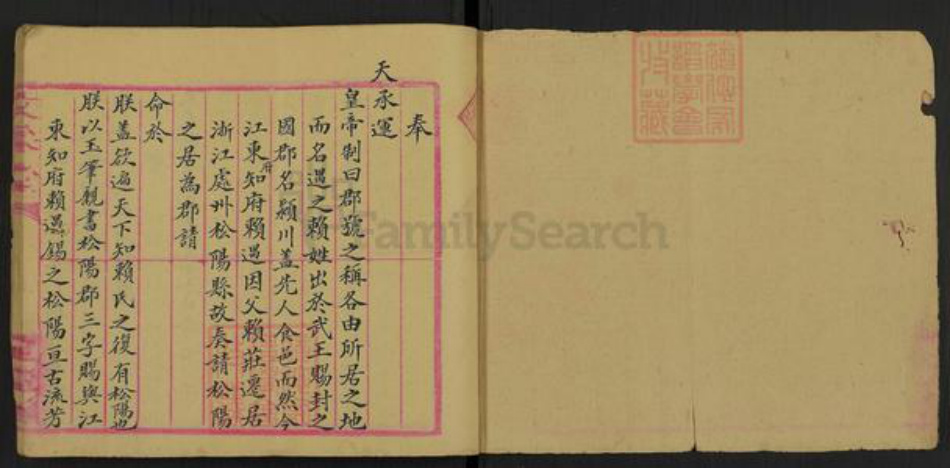 奉
天承運
皇帝制曰郡號之稱各由所居之地
而名遇之賴姓出於武王賜封之
國郡名潁川蓋先人食邑而然今
江東知府賴遇因父賴莊遷居
浙江處州松陽縣故奏請松陽
之居為郡請
命於
朕蓋欲遍天下知賴氏之復有松陽也
朕以玉筆親書松陽郡三字賜與江
東知府賴遇錫之松陽亘古流芳
FamilySearch